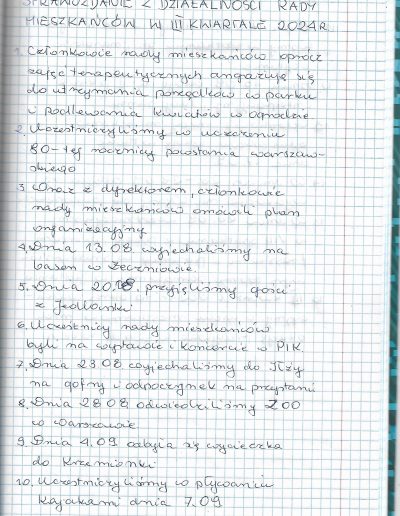 SPRAWOZDANIE Z DZIAŁALNOŚCI RADY
MIESZKAŃCÓW W III KWARTALE 2024R.
1. Członkowie rady mieszkańców oprócz
zajęć terapeutycznych angażują się
do utrzymania porządków w parku
i podlewania kwiatów w ogrodzie
2. Uczestniczyliśmy w uczczeniu
80-tej rocznicy powstania warszaw-
skiego
3. Wraz z dyrektorem, członkowie
rady mieszkańców omówili plan
organizacyjny
4. Dnia 13.08 wyjechaliśmy na
basen w Zeczniowie.
5. Dnia 20.18. przyjęliśmy gości
z Jedlanki
6. Uczestnicy rady mieszkańców
byli na wystawie i koncercie w PIK.
7. Dnia 23 08 wyjechaliśmy do Iłży
na gofry i odpoczynek na przystani
8. Dnia 28 08 odwiedziliśmy ZOO
w Warszawie
9. Dnia 4.09 odbyła się wycieczka
do Krzemionki
10. Uczestniczyliśmy w pływaniu
kajakami dnia 7.09